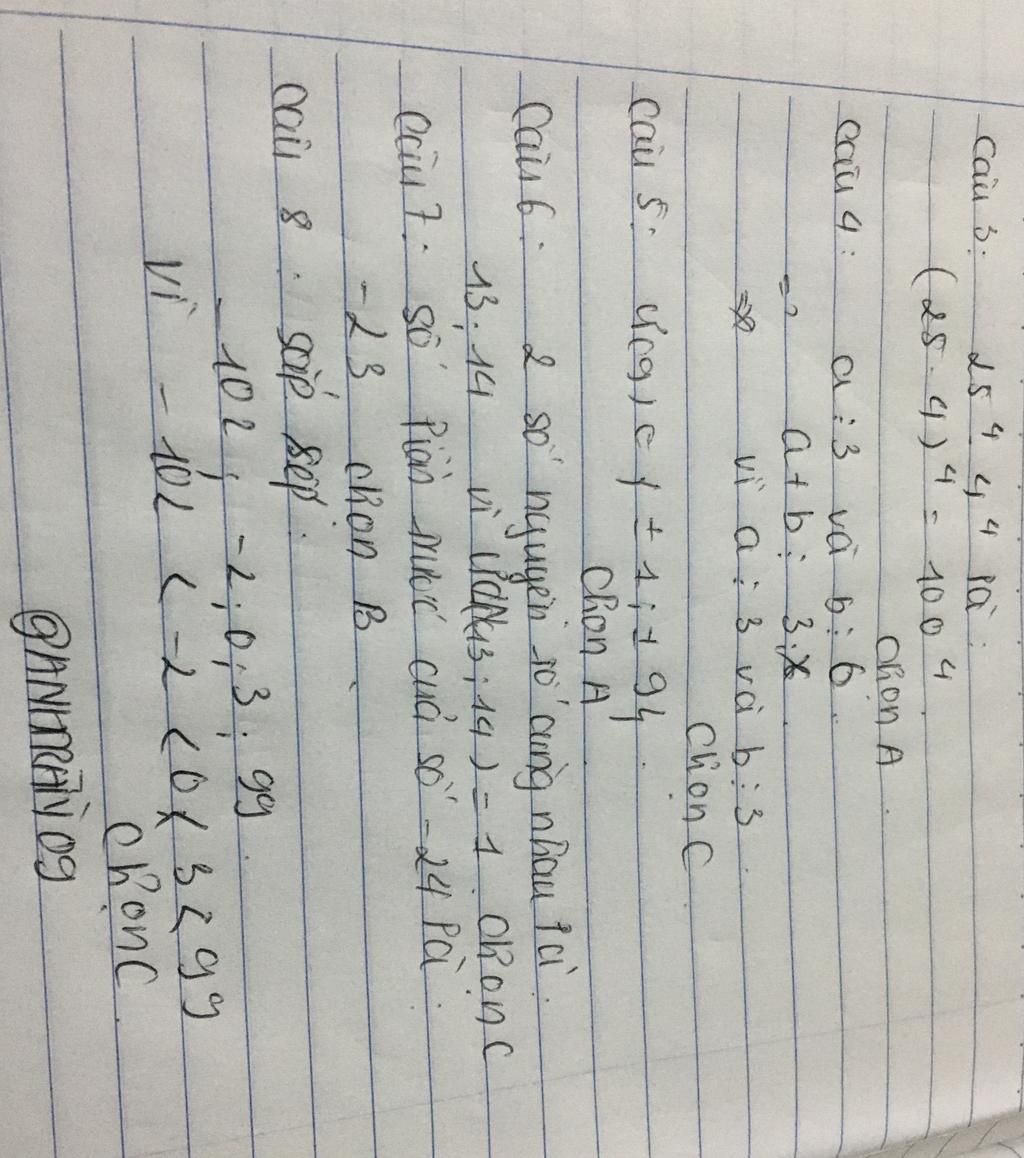 Câu 3: 25⁴ 4⁴ là:
(25.4)⁴ = 100⁴
Chọn A
Câu 4: a⋮3 và b⋮6
=> a+b⋮3
vì a⋮3 và b⋮3
Chọn C
Câu 5:
Chọn A
Câu 6: 2 số nguyên tố cùng nhau là:
13;14 vì ƯCLN(13;14) = 1. Chọn C
Câu 7: số liền trước của số -24 là:
-23 chọn B
Câu 8: sắp sếp:
-102; -2; 0; 3; 99
vì -102 < -2 < 0 < 3 < 99
Chọn C